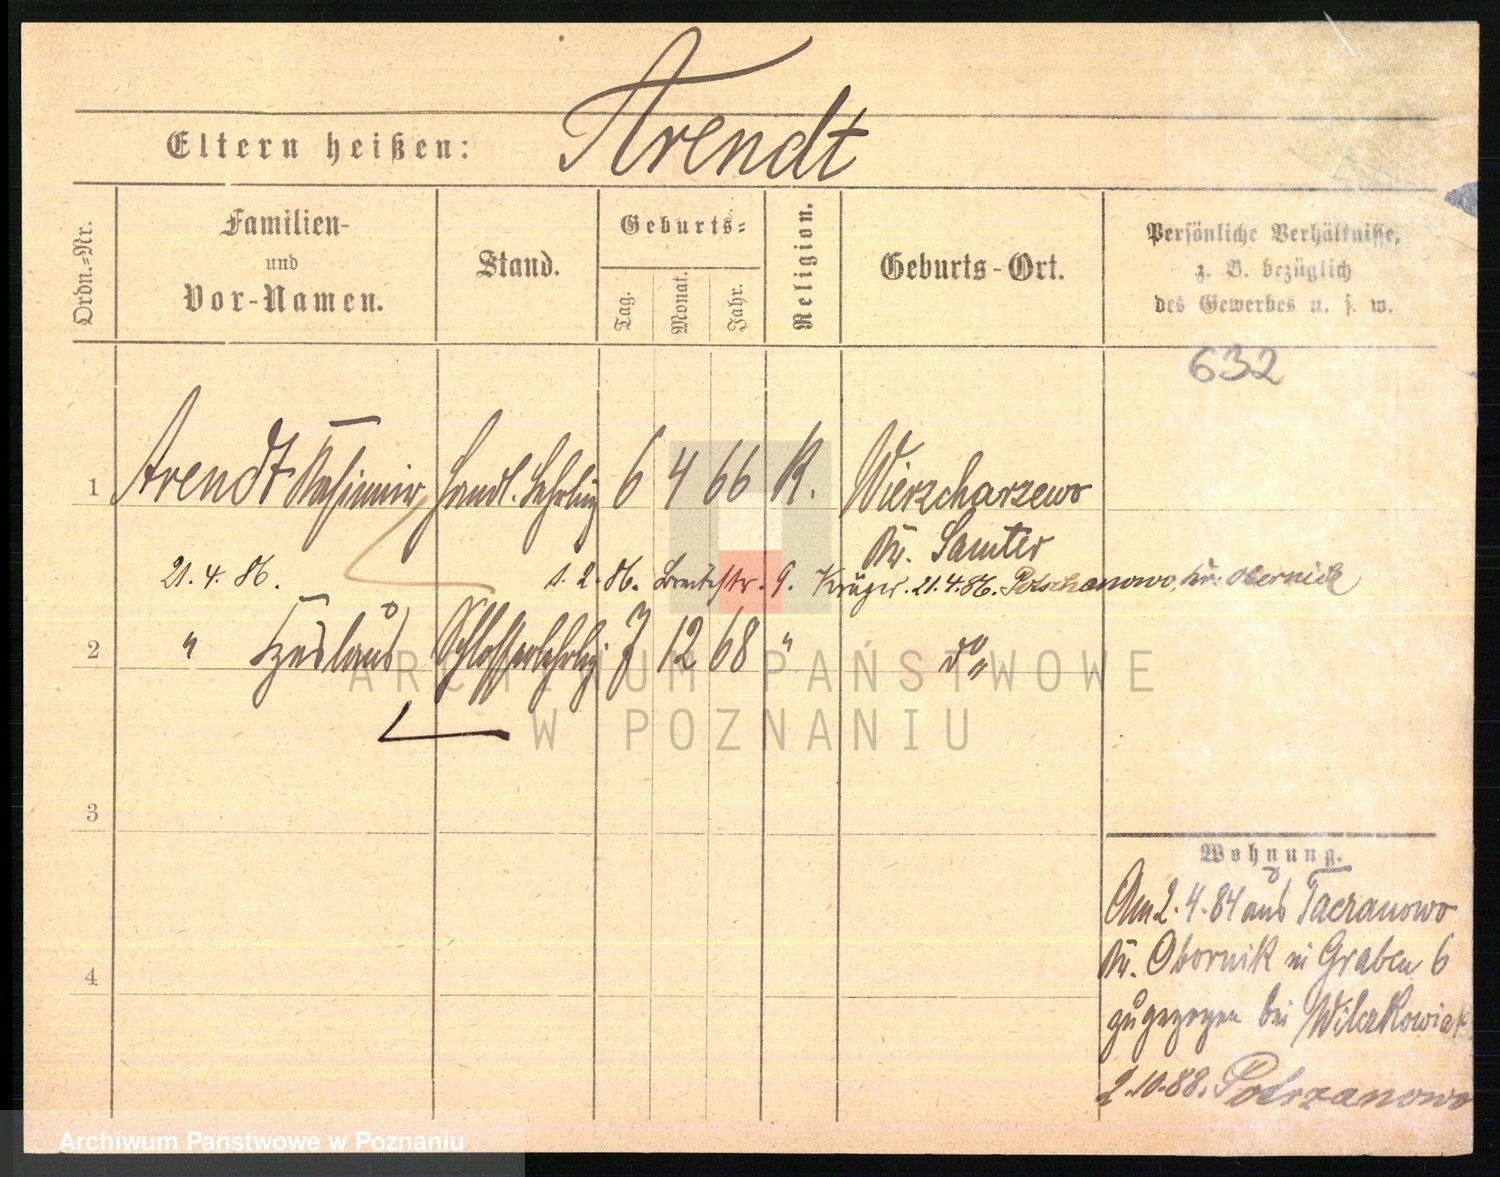 Arendt
Eltern heißen:
Ordn.-Nr.
Familien-
und
Vor-Namen.
Stand.
Geburts-
Tag.
Monat.
Jahr.
Religion.
Geburts-Ort.
Persönliche Verhältnisse,
z. B. bezüglich
des Gewerbes u. s. w.
632
1 Arendt Kasimir Handl. Lehrling 6 4 66 K. Wierzcharzewo
Kr. Samter
21. 4. 86. 1. 2. 86. Breitestr. 9. Krüger. 21. 4. 86. Potschanowo, Kr. Obernick
2 " Czeslaus Schlosserlehrlg. 7 12 68 " do "
3
4
Wohnung.
Am 2. 4. 84 aus Taczanowo
Kr. Obornik in Graben 6
zugezogen bei Wilczkowiak
2. 10. 88. Potrzanowo
ARCHIWUM PAŃSTWOWE
W POZNANIU
Archiwum Państwowe w Poznaniu